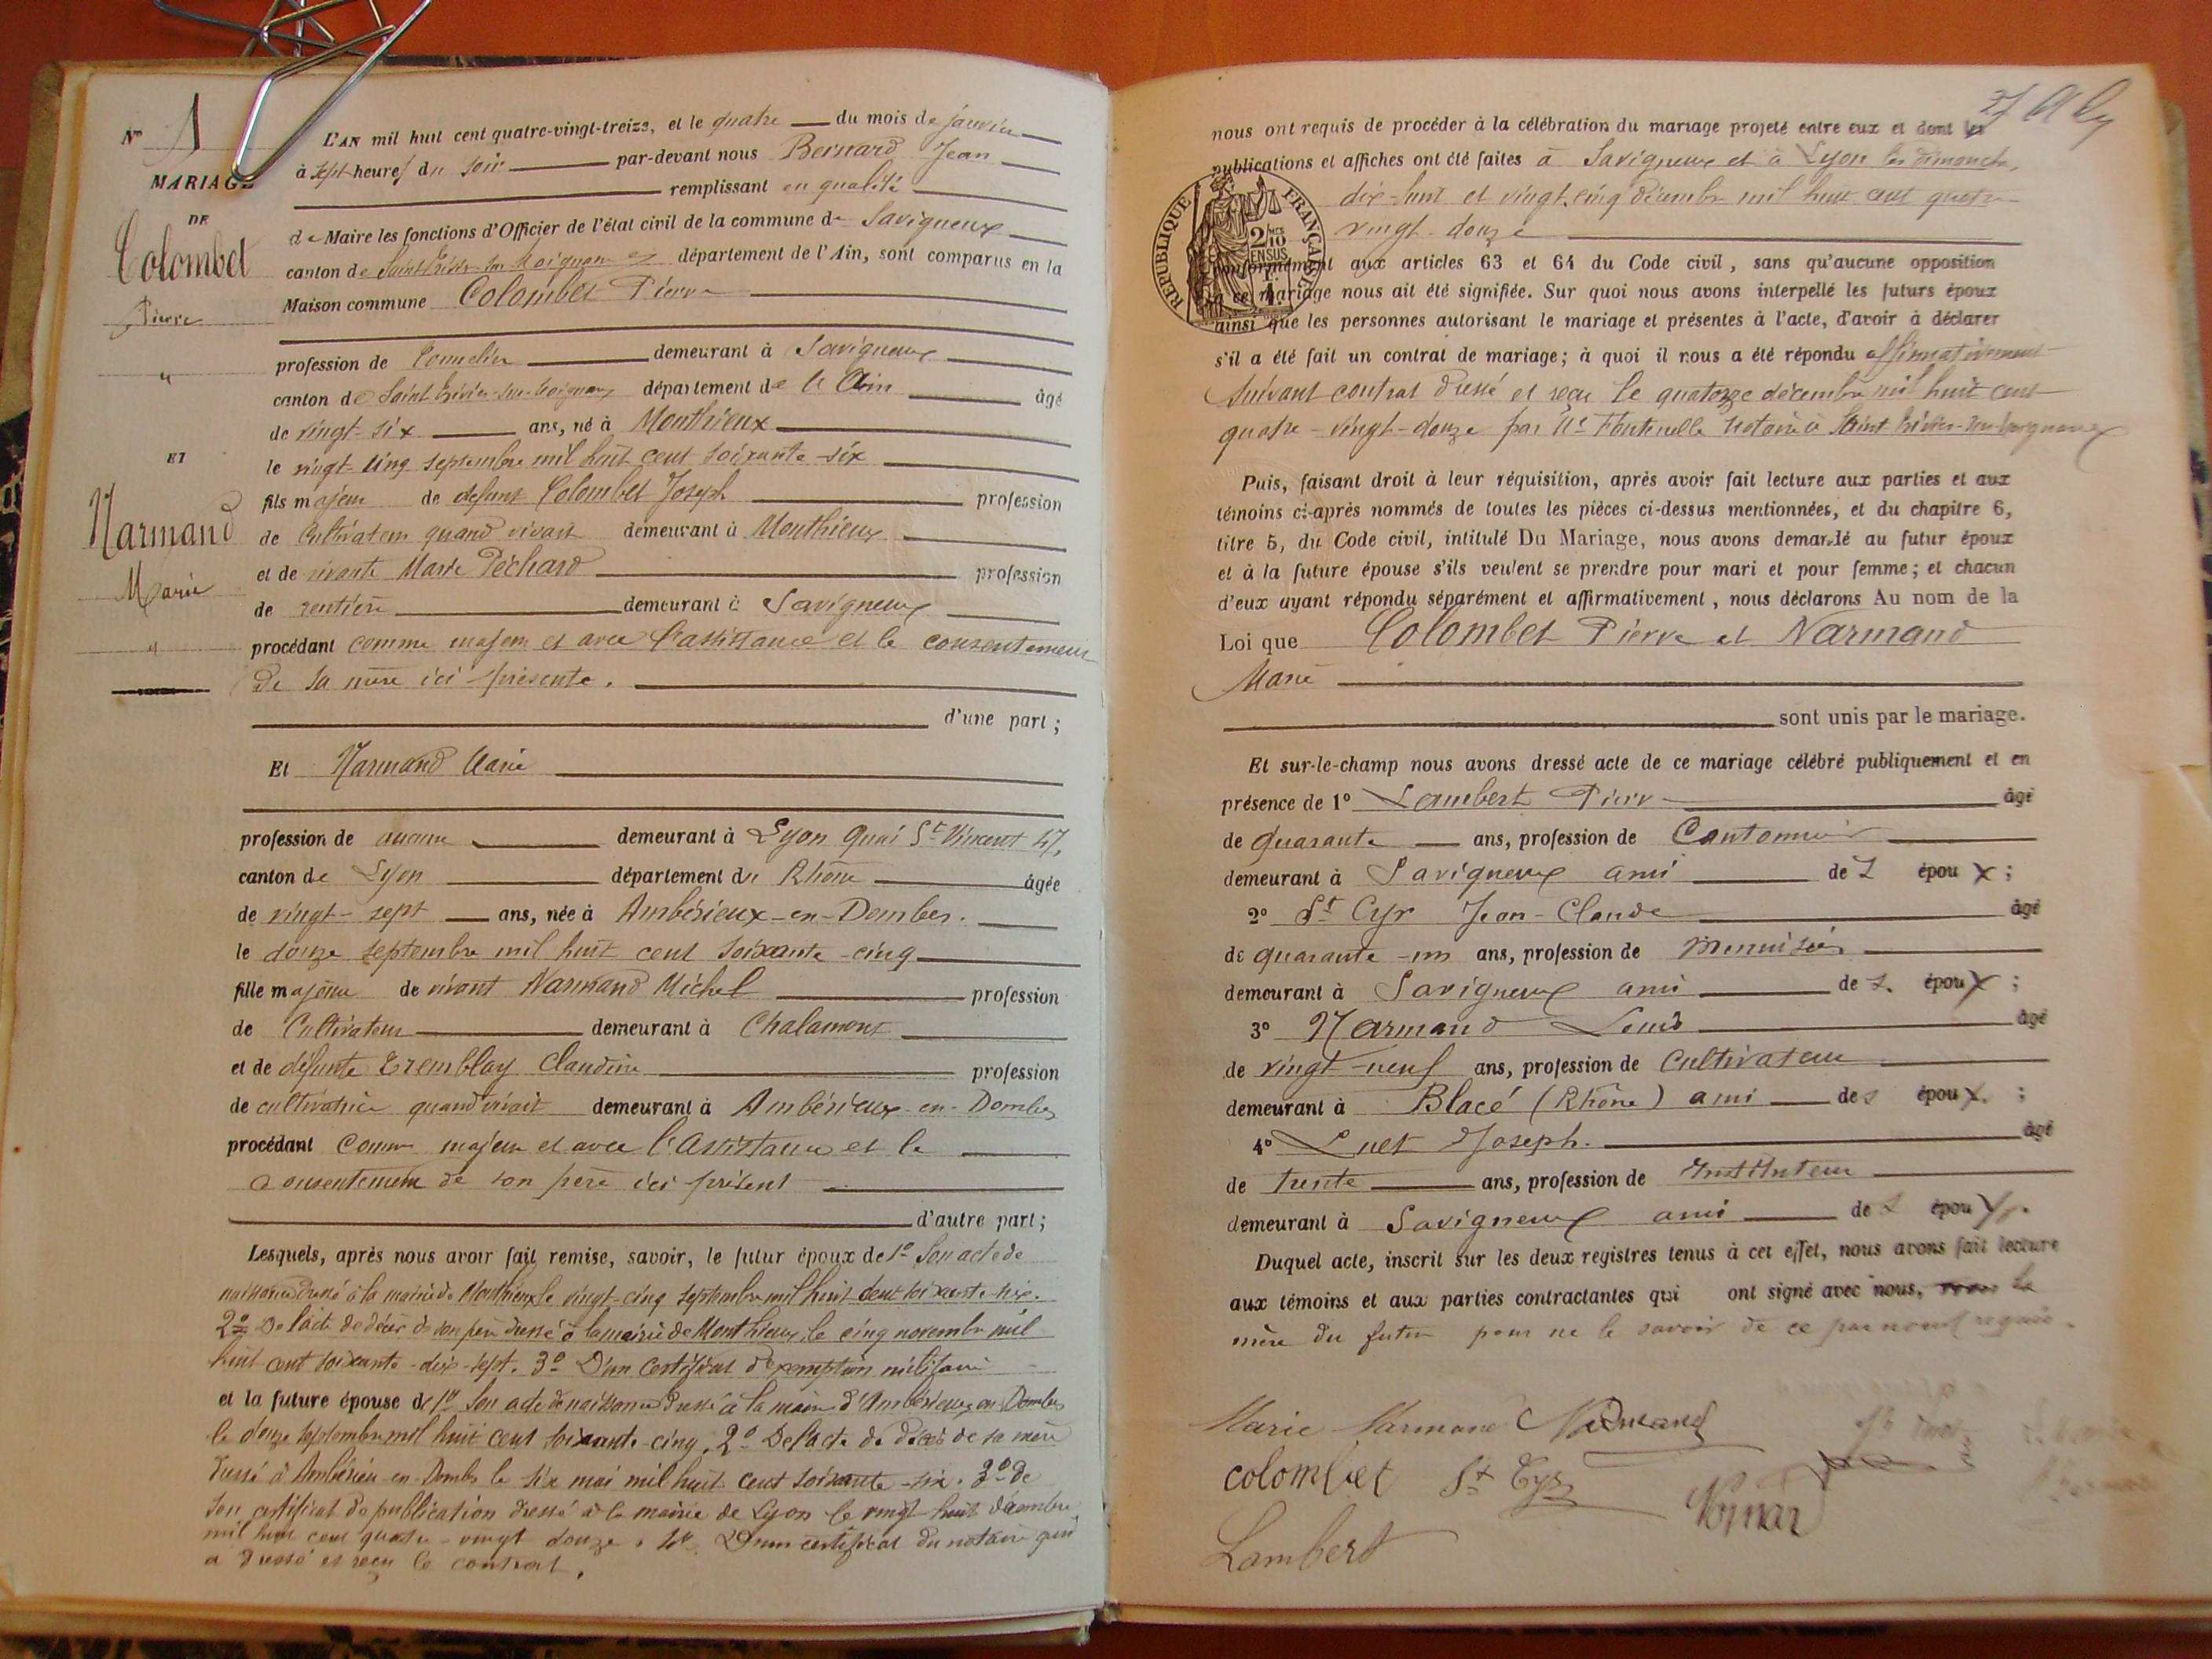 N° 1
MARIAGE
DE
Colombet
Pierre
"
ET
Narmand
Marie
"
L'AN mil huit cent quatre-vingt-treize, et le quatre du mois de janvier
à sept heures du soir par-devant nous Bernard Jean
remplissant en qualité
de Maire les fonctions d'Officier de l'état civil de la commune de Savigneux
canton de Saint Trivier sur Moignans département de l'Ain, sont comparus en la
Maison commune Colombet Pierre
profession de demeurant à Savigneux
canton de Saint Trivier-sur-Moignans département de l'Ain âgé
de vingt-six ans, né à Monthieux
le vingt-cinq septembre mil huit cent soixante-six
fils majeur de defunt Colombet Joseph profession
de Cultivateur quand vivait demeurant à Monthieux
et de vivante Marie Péchard profession
de rentière demeurant à Savigneux
procédant comme majeur et avec l'assistance et le consentement
de sa mère ici présente.
d'une part ;
Et Narmand Marie
profession de aucune demeurant à Lyon quai St Vincent 47,
canton de Lyon département du Rhône âgée
de vingt-sept ans, née à Ambérieux-en-Dombes.
le douze septembre mil huit cent soixante-cinq
fille majeure de vivant Narmand Michel profession
de Cultivateur demeurant à Chalamont
et de défunte Tremblay Claudine profession
de cultivatrice quand vivait demeurant à Ambérieux-en-Dombes
procédant comme majeure et avec l'assistance et le
consentement de son père ici présent
d'autre part ;
Lesquels, après nous avoir fait remise, savoir, le futur époux de 1° Son acte de
naissance dressé à la mairie de Monthieux le vingt-cinq septembre mil huit cent soixante-six.
2° De l'acte de décès de son père dressé à la mairie de Monthieux le cinq novembre mil
huit cent soixante-dix-sept. 3° D'un certificat d'exemption militaire
et la future épouse de 1° Son acte de naissance dressé à la mairie d'Ambérieux en Dombes
le douze septembre mil huit cent soixante-cinq. 2° De l'acte de décès de sa mère
dressé à Ambérieux-en-Dombes le six mai mil huit cent soixante-six. 3° de
son certificat de publication dressé à la mairie de Lyon le vingt-huit décembre
mil huit cent quatre-vingt douze. 4° D'un certificat du notaire qui
a dressé et reçu le contrat.
nous ont requis de procéder à la célébration du mariage projeté entre eux et dont les
publications et affiches ont été faites à Savigneux et à Lyon les dimanche,
dix-huit et vingt-cinq décembre mil huit cent quatre
vingt-douze
RÉPUBLIQUE FRANÇAISE
2/10 EN SUS
conformément aux articles 63 et 64 du Code civil, sans qu'aucune opposition
à ce mariage nous ait été signifiée. Sur quoi nous avons interpellé les futurs époux
ainsi que les personnes autorisant le mariage et présentes à l'acte, d'avoir à déclarer
s'il a été fait un contrat de mariage ; à quoi il nous a été répondu affirmativement
suivant contrat dressé et reçu le quatorze décembre mil huit cent
quatre-vingt-douze par Me Fontenelle notaire à Saint Trivier-sur-Moignans
Puis, faisant droit à leur réquisition, après avoir fait lecture aux parties et aux
témoins ci-après nommés de toutes les pièces ci-dessus mentionnées, et du chapitre 6,
titre 5, du Code civil, intitulé Du Mariage, nous avons demandé au futur époux
et à la future épouse s'ils veulent se prendre pour mari et pour femme ; et chacun
d'eux ayant répondu séparément et affirmativement, nous déclarons Au nom de la
Loi que Colombet Pierre et Narmand
Marie
sont unis par le mariage.
Et sur-le-champ nous avons dressé acte de ce mariage célébré publiquement et en
présence de 1° Lambert Pierre âgé
de quarante ans, profession de Cantonnier
demeurant à Savigneux ami des époux ;
2° St Cyr Jean-Claude âgé
de quarante-un ans, profession de menuisier
demeurant à Savigneux ami des époux ;
3° Narmand Louis âgé
de vingt-neuf ans, profession de Cultivateur
demeurant à Blacé (Rhône) ami des époux ;
4° Luet Joseph. âgé
de trente ans, profession de Instituteur
demeurant à Savigneux ami des époux.
Duquel acte, inscrit sur les deux registres tenus à cet effet, nous avons fait lecture
aux témoins et aux parties contractantes qui ont signé avec nous, la
mère du futur pour ne le savoir de ce par nous requis.
Marie Narmand Narmand
colombet St Cyr
Lambert